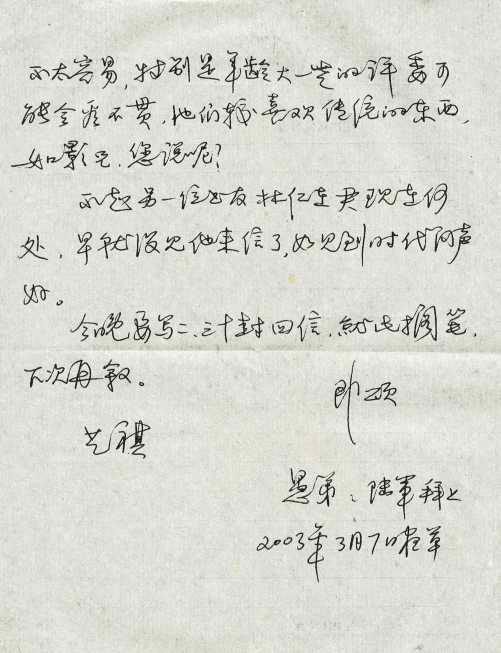 不太容易，特别是年龄大一些的评委可
能会看不贯，他们较喜欢传统的东西，
如影已，您说呢？
不知另一位书友杜仁在君现在何
处，早就没见他来信了，如见到时代问声
好。
今晚要写二、三十封回信，就此搁笔，
下次再叙。
即颂
艺祺
愚弟：陆军拜上
2003年3月7日程草